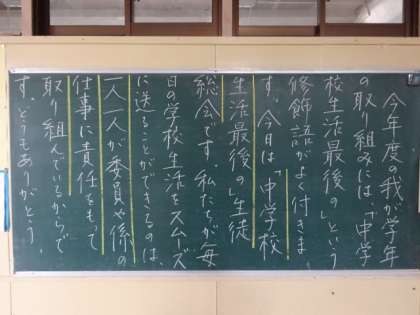 今年度の我が学年
の取り組みには、「中学
校生活最後の」という
修飾語がよく付きま
す。今日は「中学校
生活最後の」生徒
総会です。私たちが毎
日の学校生活をスムーズ
に送ることができるのは、
一人一人が委員や係の
仕事に責任をもって
取り組んでいるからで
す。どうもありがとう。